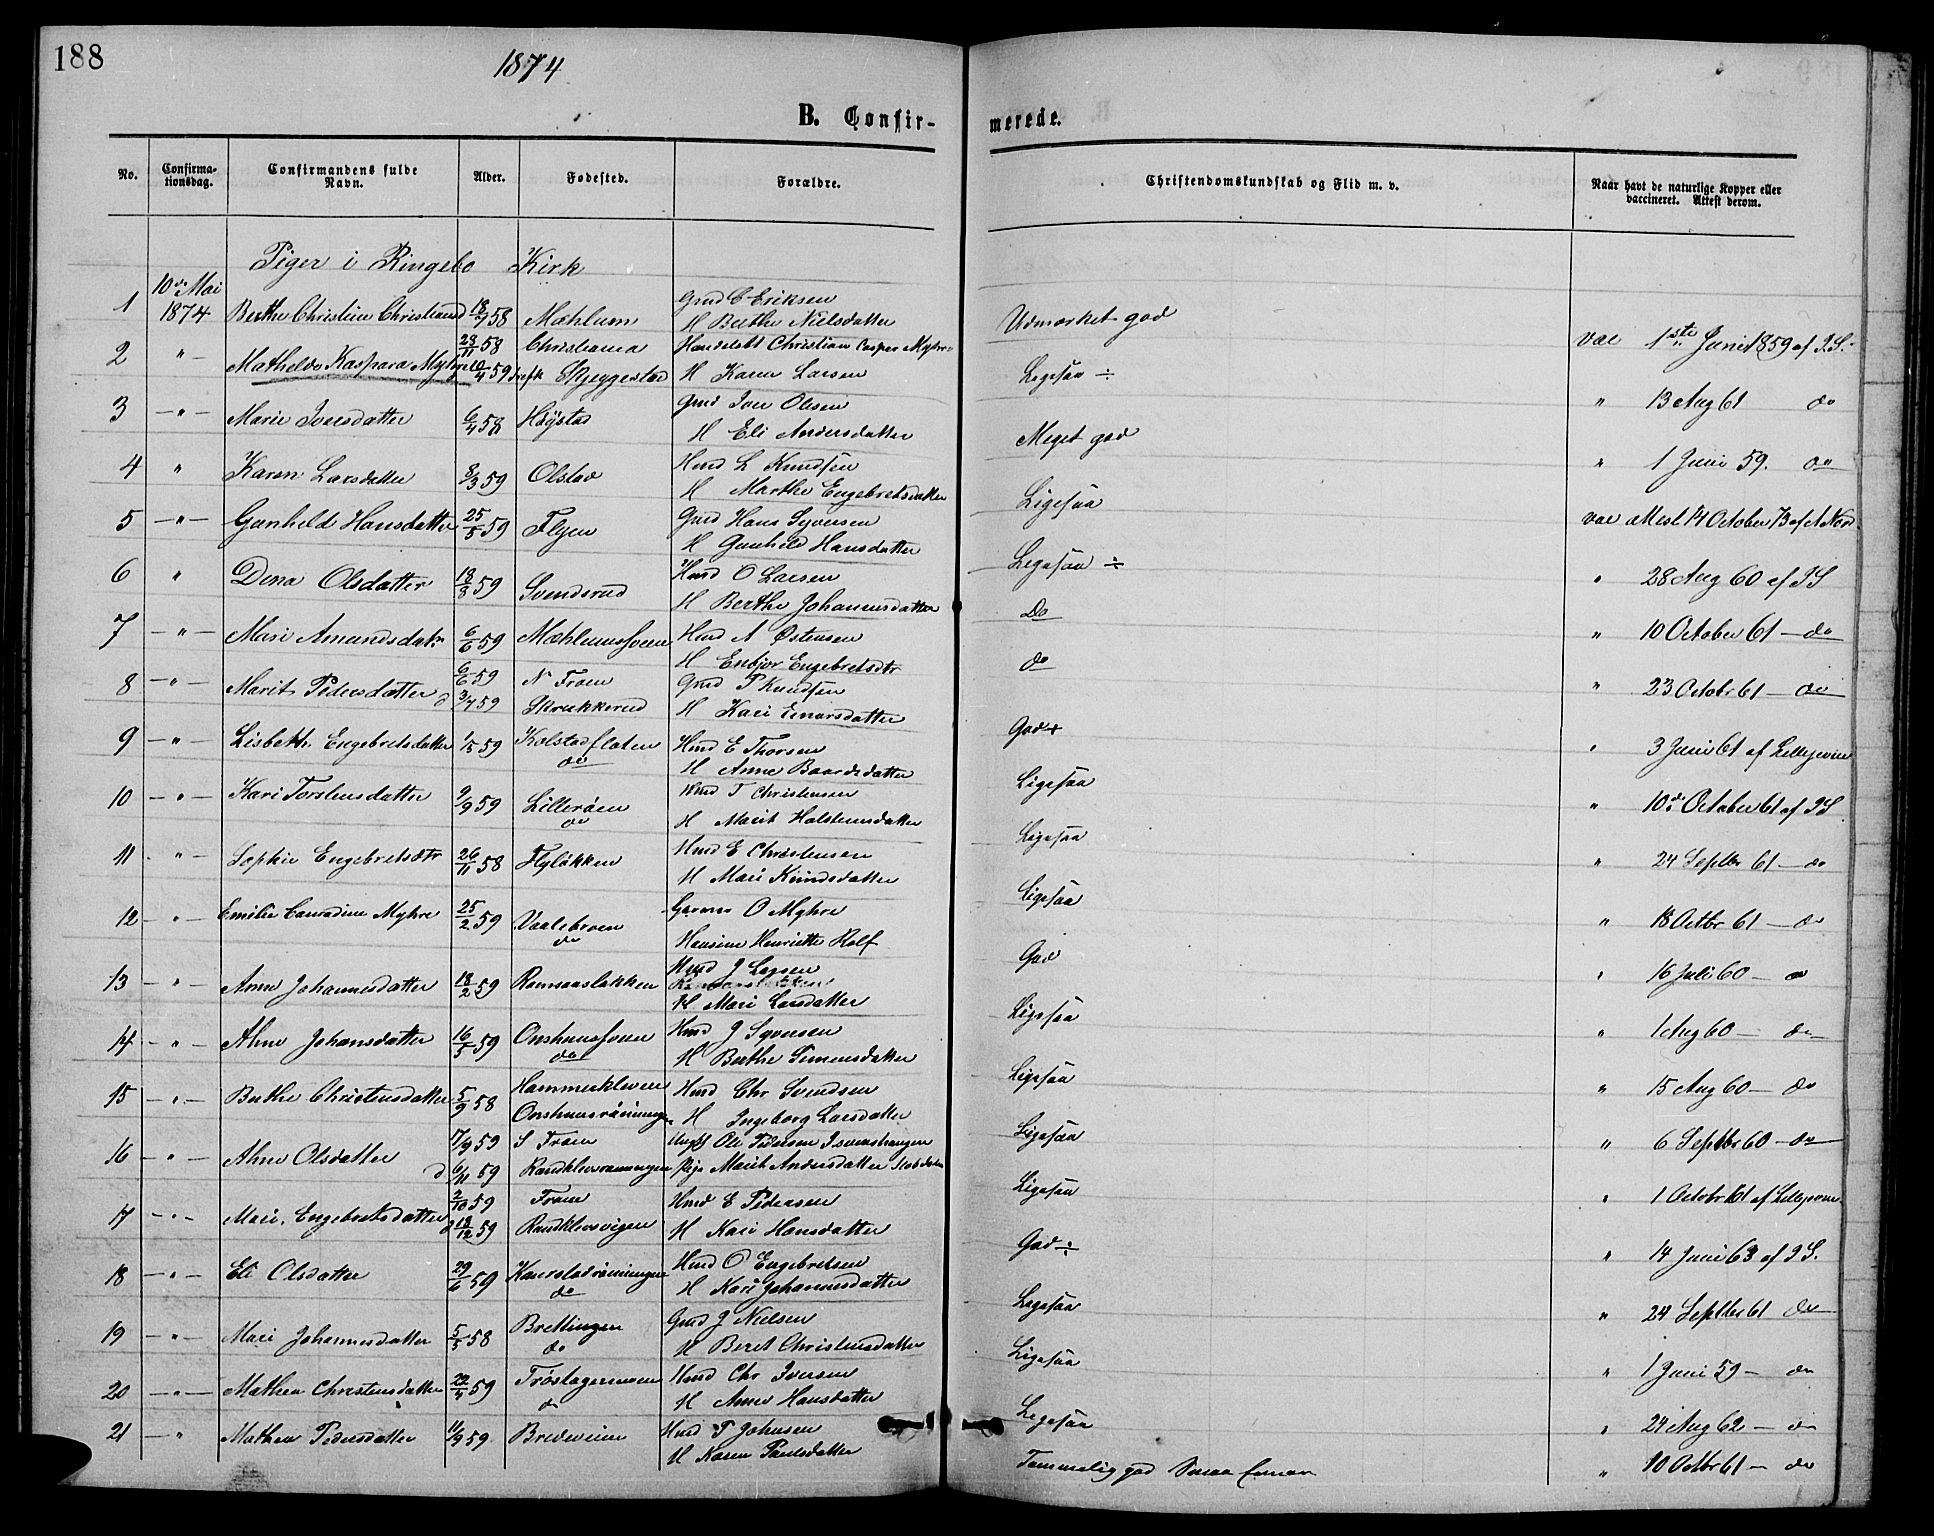 188
1874
B. Confirmerede.
No. Confirmationsdag. Confirmandens fulde Navn. Alder. Fødested. Forældre. Christendomskundskab og Flid m. v. Naar havt de naturlige Kopper eller vaccineret. Attest derom.
Piger i Ringebo Kirk
10de Mai
1 1874 Berthe Christine Christiansd 18/7 58 Mæhlum Gmd C Eriksen
H Berthe Nielsdatter
Udmærket god
vac 1ste Juni 1859 af I.S.
2 " 28/11 58 Christiania Handelsbt Christian Casper Myhre
Mathilde Kaspara Myhre 10/4 59 Skjeggestad H Karen Larsen
Ligesaa ÷
" 13 Aug 61 do
3 " Marie Iversdatter 6/4 58 Høystad Gmd Iver Olesen
H Eli Andersdatter
Meget god
" 1 Juni 59. do
4 " Karen Larsdatter 8/3 59 Olstad Hmd L Knudsen
H Marthe Engebretsdatter
Ligesaa
vac Attest 14 October 73 af A Nord
5 " Gunhild Hansdatter 25/5 59 Flyen Gmd Hans Syversen
H Gunhild Hansdatter
Ligesaa ÷
" 28 Aug 60 af I S
6 " Dina Olsdatter 18/8 59 Svendsrud Hmd O Larsen
H Berthe Johannesdatter
Do
" 10 October 61 - do
7 " Mari Amundsdatr 6/6 59 Mæhlumsveen Hmd A Østensen
H Enbjør Engebretsdtr
do
" 23 Octobr 61 - do
8 " Marit Pedersdatter 6/6 59 N Froen Gmd P Knudsen
d 3/7 59 Skrukkerud H Kari Einarsdatter
God +
" 3 Juni 61 af Lillegevine
9 " Lisbeth Engebretsdatter 1/5 59 Kolstadfloten Hmd E Thorsen
do H Anne Baardsdatter
Ligesaa
" 10de October 61 af I S
10 " Kari Torstensdatter 9/9 59 Lillerøen Hmd T Christensen
do H Marit Halstensdatter
Ligesaa
" 24 Septbr 61 - do
11 " Sophie Engebretsdtr 26/11 58 Flyløkken Hmd E Christensen
H Mari Knudsdatter
Ligesaa
" 18 Octbr 61 - do
12 " Emilie Conradine Myhre 25/2 59 Vaalebroen Garver O Myhre
do Hansine Henriette Rolf
God
" 16 Juli 60 - do
13 " Anne Johannesdatter 18/2 59 Romsaasløkken Hmd J Larsen
H Mari Larsdatter
Ligesaa
" 1 Aug 60 - do
14 " Ahne Johansdatter 16/5 59 Onshussveen Hmd J Syversen
do H Berthe Simensdatter
Ligesaa
" 15 Aug 60 - do
15 " Berthe Christensdatter 5/9 58 Hammerkleven Hmd Chr Svendsen
Onshusrønningen H Ingeborg Larsdatter
Ligesaa
" 6 Septbr 60 - do
16 " Ahne Olsdatter 17/9 59 S Froen Ungk Ole Pedersen
d 6/11 59 Randklevrønningen Pige Marit Andersdatter
Ligesaa
" 1 Octobr 61 af Lillegevine
17 " Mari Engebretsdatter 2/10 59 Froen Hmd E Pedersen
d 18/12 59 Randklevsvigen H Kari Hansdatter
God ÷
" 14 Juni 63 af I S.
18 " Eli Olsdatter 29/6 59 Kaurstadrønningen Hmd O Engebretsen
do H Kari Johannesdatter
Ligesaa
" 24 Septbr 61 do
19 " Mari Johannesdatter 5/5 58 Brettingen Gmd J Nielsen
do H Beret Christensdatter
Ligesaa
" 1 Juni 59 - do
20 " Mathea Christensdatter 22/4 59 Trøstagermoen Hmd Chr Iversen
do H Anne Hansdatter
Ligesaa
" 24 Aug 62 - do
21 " Mathea Pedersdatter 11/9 59 Bredeveien Hmd P Johnsen
H Karen Paulsdatter
Temmelig god Smaa Evner
" 10 Octbr 61 - do